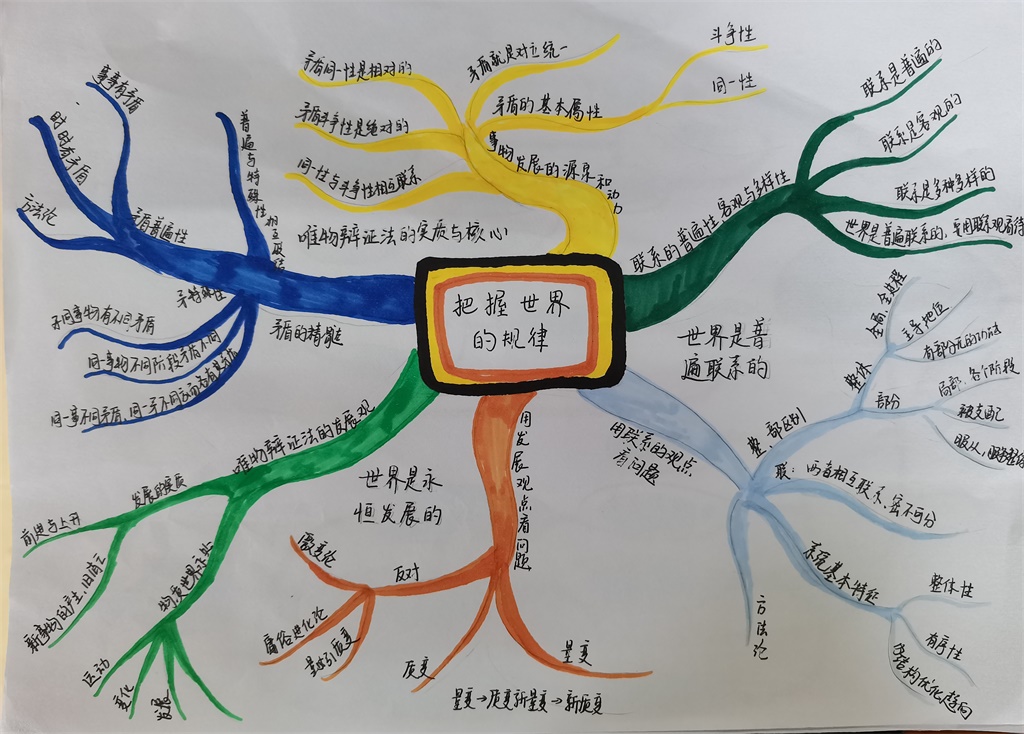 把握世界
的规律
事物发展的源泉和动力
矛盾就是对立统一
矛盾的基本属性
斗争性
同一性
矛盾同一性是相对的
矛盾斗争性是绝对的
同一性与斗争性相互联系
唯物辩证法的实质与核心
联系的普遍性客观与多样性
联系是普遍的
联系是客观的
联系是多种多样的
世界是普遍联系的,要用联系观看待
世界是普
遍联系的
用联系的观点
看问题
整、部区别
整体
全局、全过程
主导地位
有部分无的功能
部分
局部、各个阶段
被支配
服从、服务整体
联:两者相互联系,密不可分
系统基本特征
整体性
有序性
内结构优化趋向
方法论
用发展观点看问题
反对
激变论
庸俗进化论
质变
量变
量变→质变新量变→新质变
世界是永
恒发展的
唯物辩证法的发展观
发展的实质
前进与上升
新事物的产生,旧消亡
物质世界永处
运动
变化
发展
矛盾普遍性
事事有矛盾
时时有矛盾
方法论
普遍与特殊性相互联结
矛盾的精髓
矛特殊性
不同事物有不同矛盾
同事物不同阶段矛盾不同